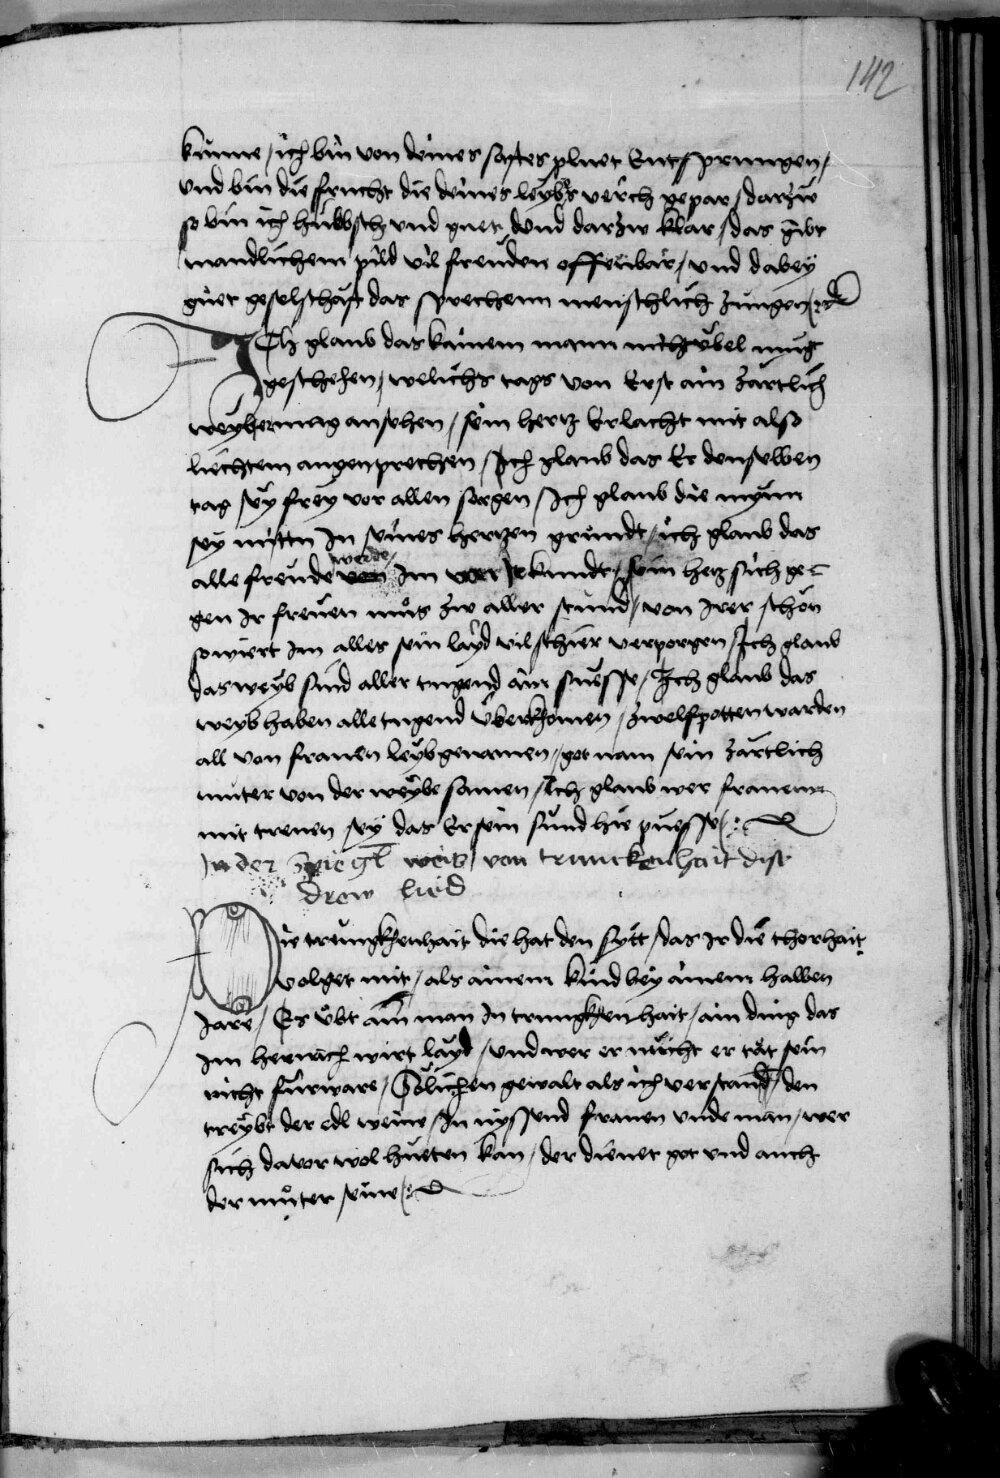 142
kunne / ich bin von deines saftes pluet Entsprungen /
Vnd bin die frucht die deines leybs verch gepar / darzw
so bin ich hubbsch vnd guet vnd darzw klar / das gibt
mandlichem pild vil freuden offenbar / vnd dabey
guet geselschaft das sprechenn menschlich zungen
Ich glaub das kainem mann nicht ubel mug
geschehen / welichs tags von Erst ain zartlich
weyb ermag ansehen / sein hertz Erlacht mit also
liechtem augen prechen / Ich glaub das Er denselben
tag sey frey vor allen sorgen / Ich glaub die mynn
sey mitten In seines hertzen grundt / ich glaub das
alle freude werde Im von Ir kundt / sein hertz sich ge-
gen Ir freuen mus zw aller stund / von Irer schon
so wiert Im alles sein layd vil schier verporgen / Ich glaub
das weyb sind aller tugend ain suesse / Ich glaub das
weyb haben alle tugend uberkhomen / zwelfpotten warden
all von frauen leyb genomen / got nam sein zartlich
muter von der weybe samen / Ich glaub wer frauen
mit treuen sey das Er sein sund hie puesse
In der Spiegl weis von trunckenhait dise
drew lied
Die trungkhenhait die hat den sytt / das Ir die thorhait
volget mit / als ainem kind bey ainem halben
Jare / Es ubt ain man In trungkhenhait / ain ding das
Im hernach wirt layd / vnd wer er nucht er tat sein
nicht furware / Solichen gewalt als ich verstand / den
treybt der edl weine / In nyssend frauen vnde man / wer
sich davor wol hueten kan / der dienet got vnd auch
der muter seine